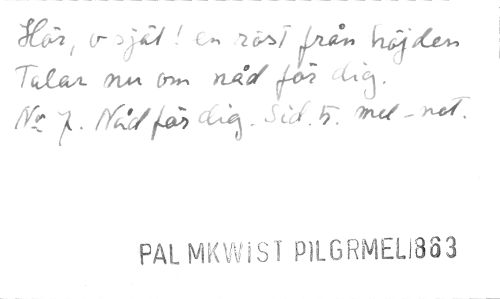 Hör, o själ! en röst från höjden
Talar nu om nåd för dig.
No 7. Nåd för dig. Sid. 5. mel-not.
PALMKWIST PILGRMEL1863